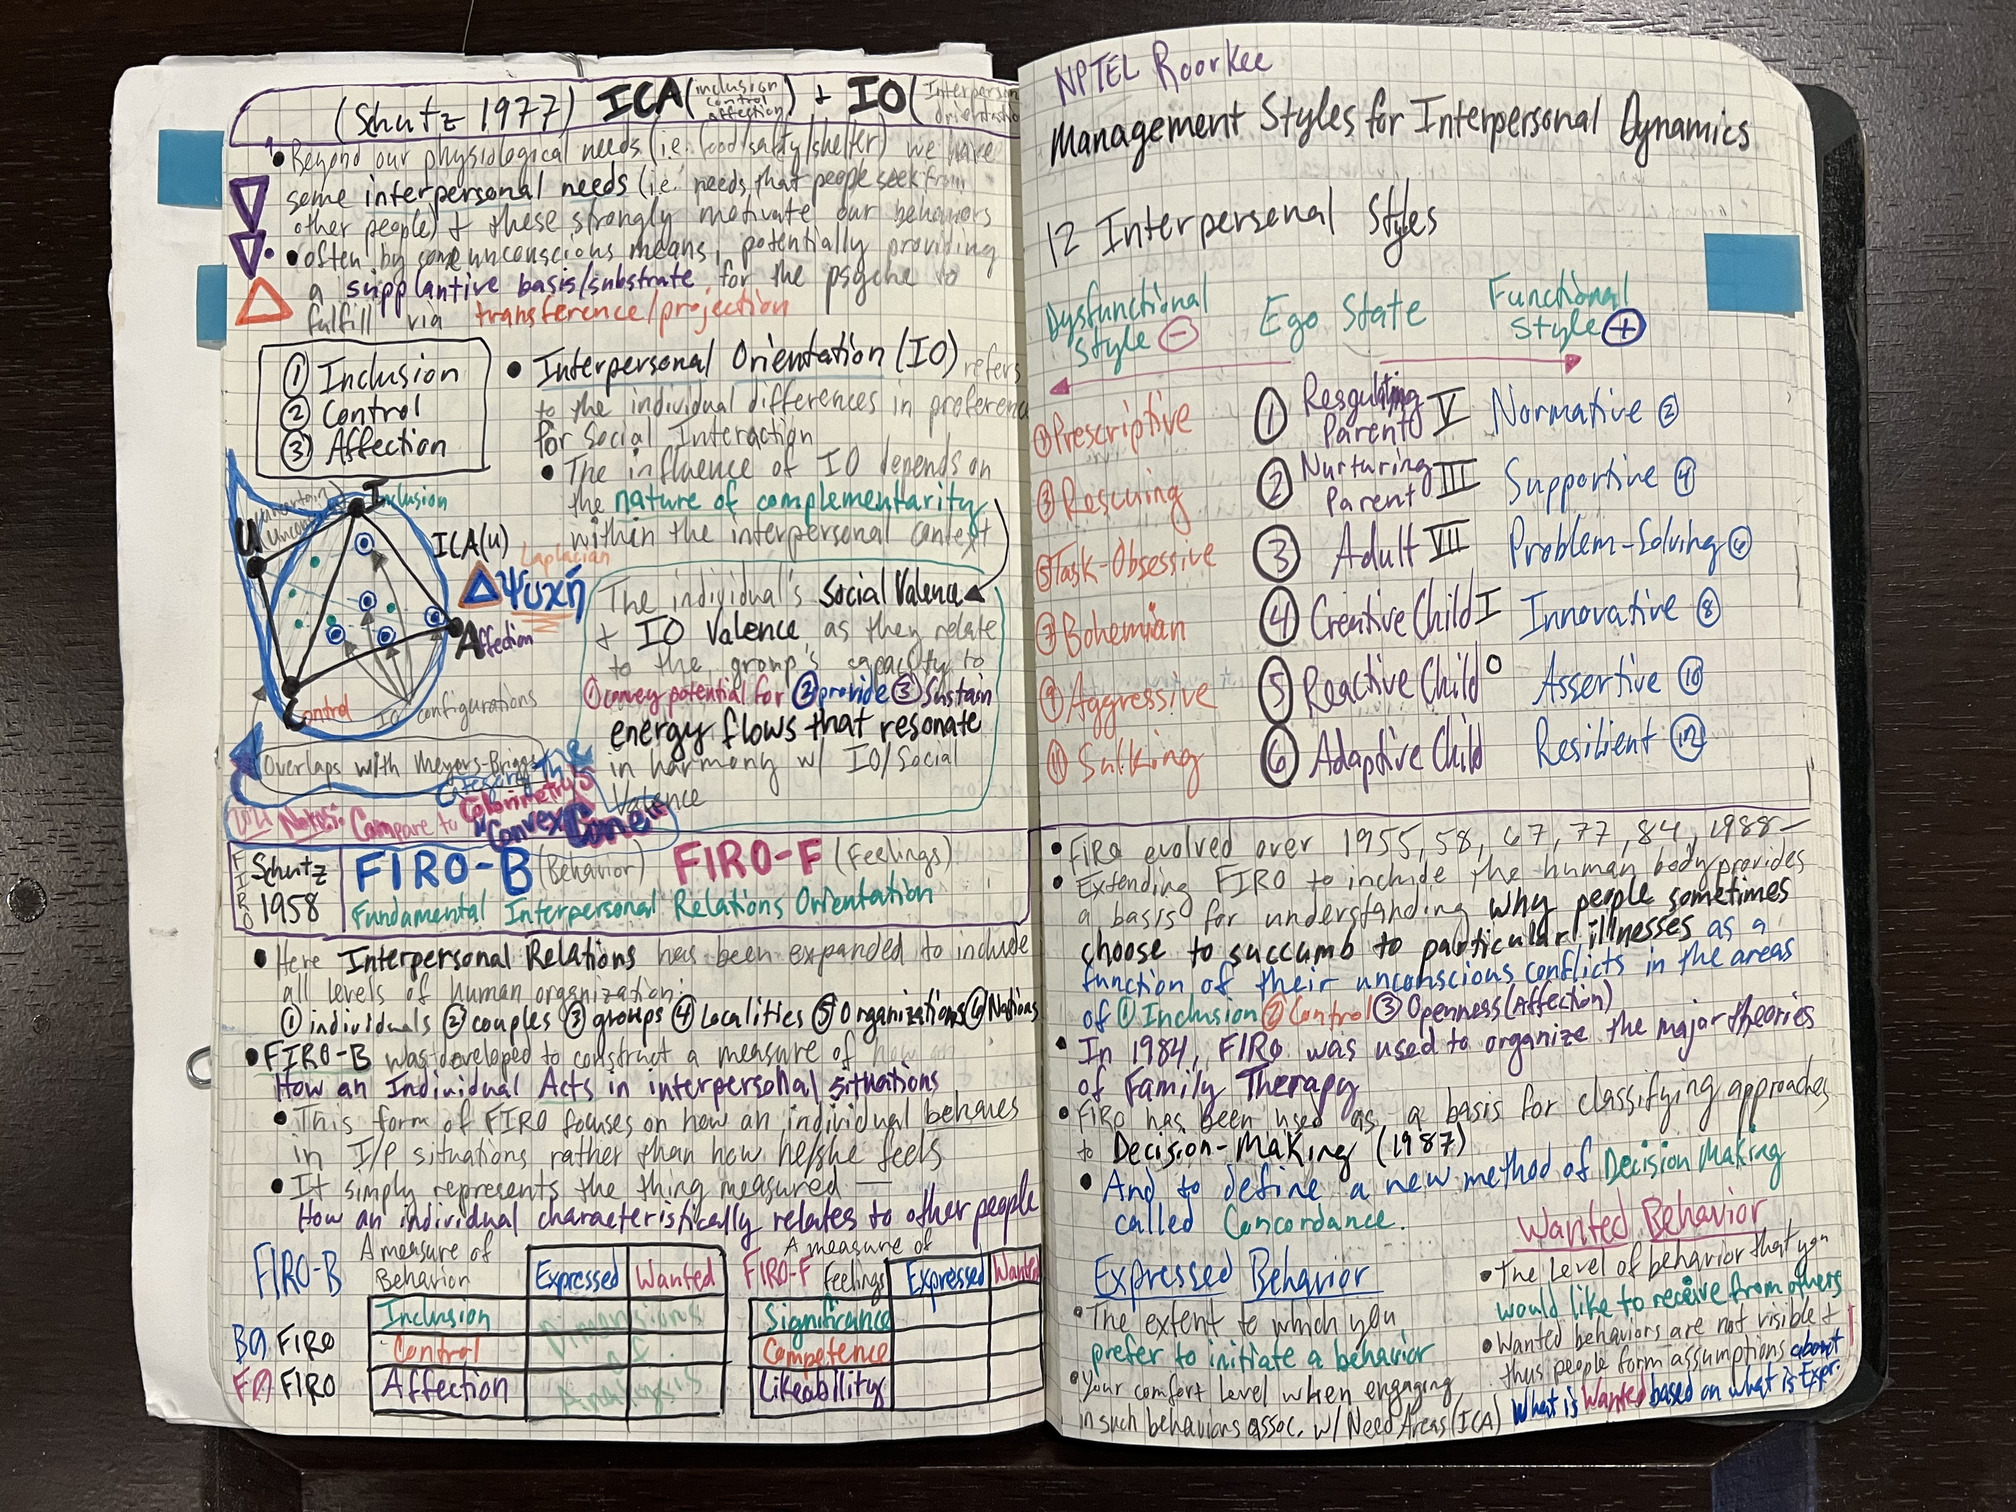 (Schutz 1977) ICA (inclusion control affection) + IO (Interperson orientatio
• Beyond our physiological needs (i.e. food/safty/shelter) we have
some interpersonal needs (i.e. needs that people seek from
other people) + these strongly motivate our behaviors
• often by some unconscious means, potentially providing
a supplantive basis/substrate for the psyche to
fulfill via transference/projection
① Inclusion
② Control
③ Affection
• Interpersonal Orientation (IO) refers
to the individual differences in preference
for Social Interaction
• The influence of IO depends on
the nature of complementarity
within the interpersonal context
U
Inclusion
ICA(u)
Laplacian
Δ Ψυχή
Affection
Control
IO configurations
The individual's Social Valence
+ IO Valence as they relate
to the group's capacity to
① convey potential for ② provide ③ Sustain
energy flows that resonate
in harmony w/ IO/Social
Valence
Overlaps with Meyers-Briggs
Category Theory
Notes: Compare to Colorimetry's
"Convex Cone"
FIRO
Schutz
1958
FIRO-B (Behavior) FIRO-F (Feelings)
Fundamental Interpersonal Relations Orientation
• Here Interpersonal Relations has been expanded to include
all levels of human organization:
① individuals ② couples ③ groups ④ Localities ⑤ Organizations ⑥ Nations
• FIRO-B was developed to construct a measure of how an
How an Individual Acts in interpersonal situations
• This form of FIRO focuses on how an individual behaves
in I/P situations rather than how he/she feels
• It simply represents the thing measured —
How an individual characteristically relates to other people
FIRO-B
A measure of
Behavior
Expressed Wanted
Inclusion
Control
Affection
Dimensions
of
Analysis
FIRO
FIRO
FIRO-F
A measure of
feelings
Expressed Wanted
Significance
Competence
Likeability
NPTEL Roorkee
Management Styles for Interpersonal Dynamics
12 Interpersonal Styles
Dysfunctional Style ⊖ Ego State Functional Style ⊕
① Prescriptive ① Resgulating Parent V Normative ②
③ Rescuing ② Nurturing Parent III Supportive ④
⑤ Task-Obsessive ③ Adult VII Problem-Solving ⑥
⑦ Bohemian ④ Creative Child I Innovative ⑧
⑨ Aggressive ⑤ Reactive Child O Assertive ⑩
⑪ Sulking ⑥ Adaptive Child Resilient ⑫
• FIRO evolved over 1955, 58, 67, 77, 84, 1988—
• Extending FIRO to include the human body provides
a basis for understanding why people sometimes
choose to succumb to particular illnesses as a
function of their unconscious conflicts in the areas
of ① Inclusion ② Control ③ Openness (Affection)
• In 1984, FIRO was used to organize the major theories
of Family Therapy
• FIRO has been used as a basis for classifying approaches
to Decision-Making (1987)
• And to define a new method of Decision Making
called Concordance.
Expressed Behavior
• The extent to which you
prefer to initiate a behavior
• Your comfort level when engaging
in such behaviors assoc. w/ Need Areas (ICA)
Wanted Behavior
• The level of behavior that you
would like to receive from others
• Wanted behaviors are not visible +
thus people form assumptions about
What is Wanted based on what is Expr.